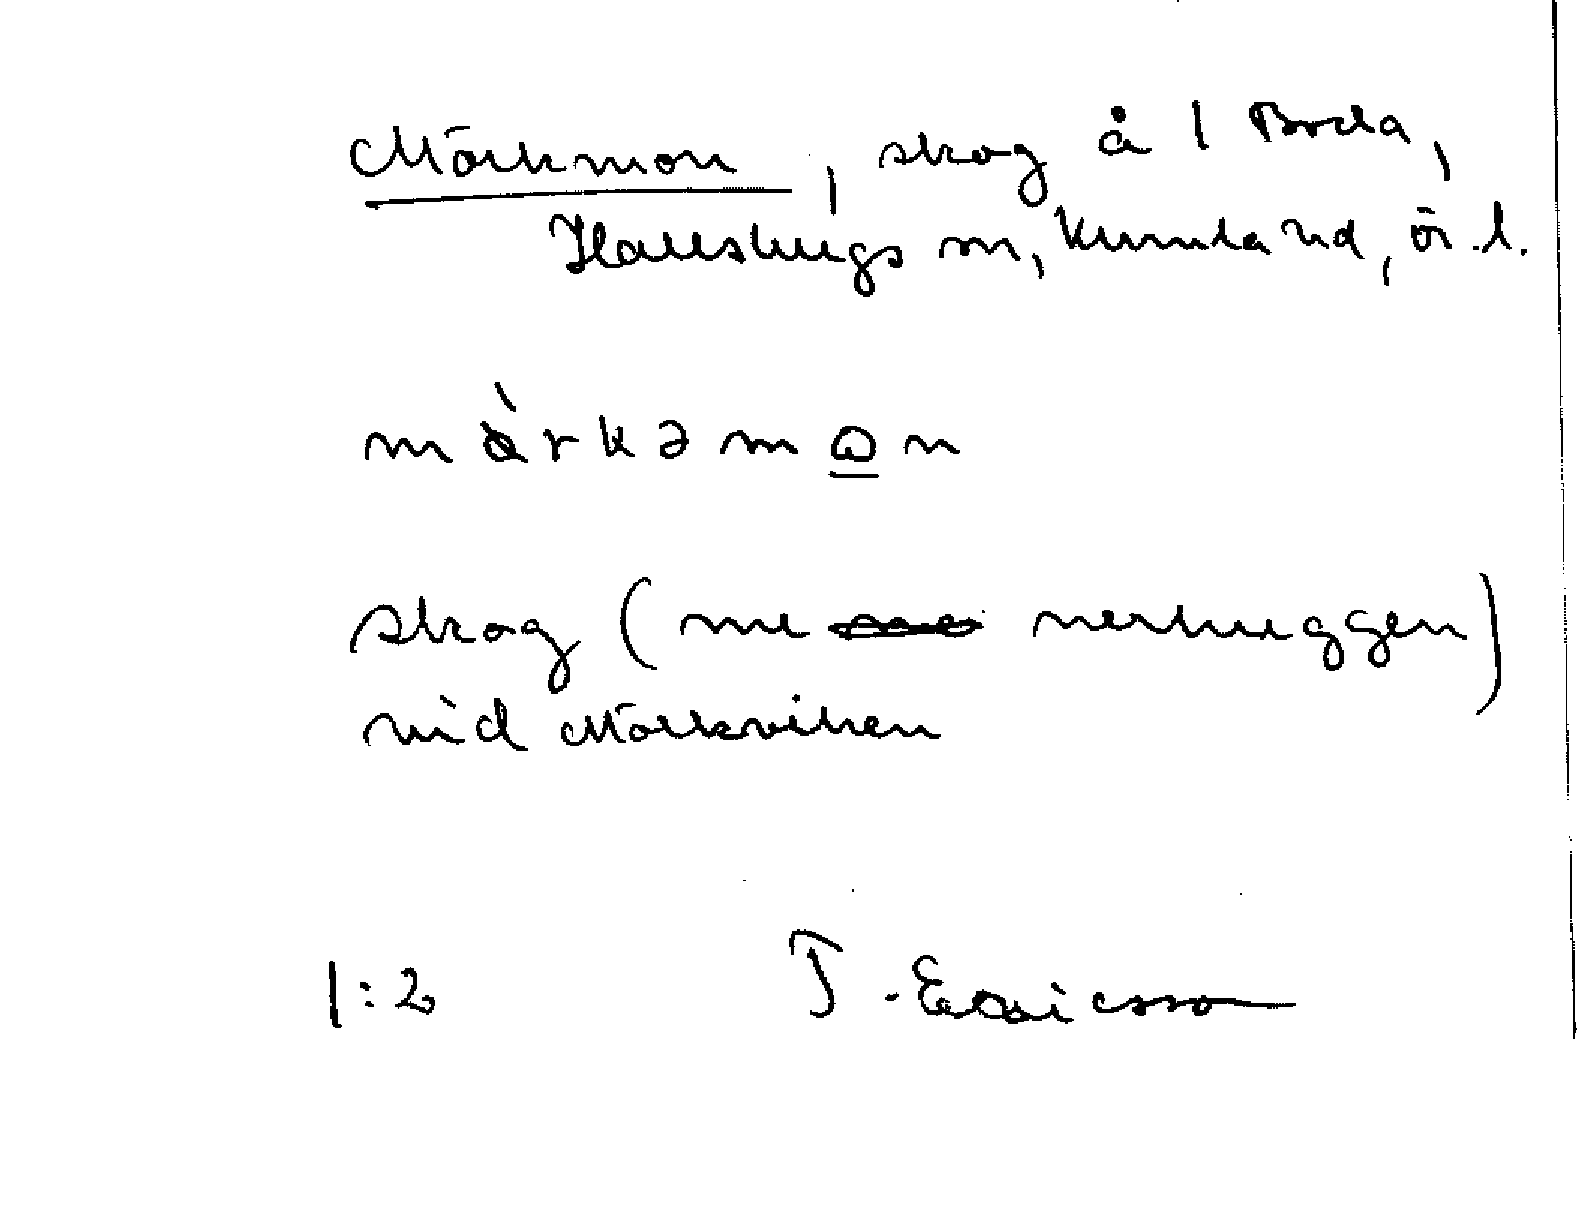 Mörkmon, skog å 1 Boda,
Hallsbergs sn, Kumla hd, ör. l.
mörkəmωn
skog (nu nerhuggen)
vid Mörkviken
1:2 T. Ericsson